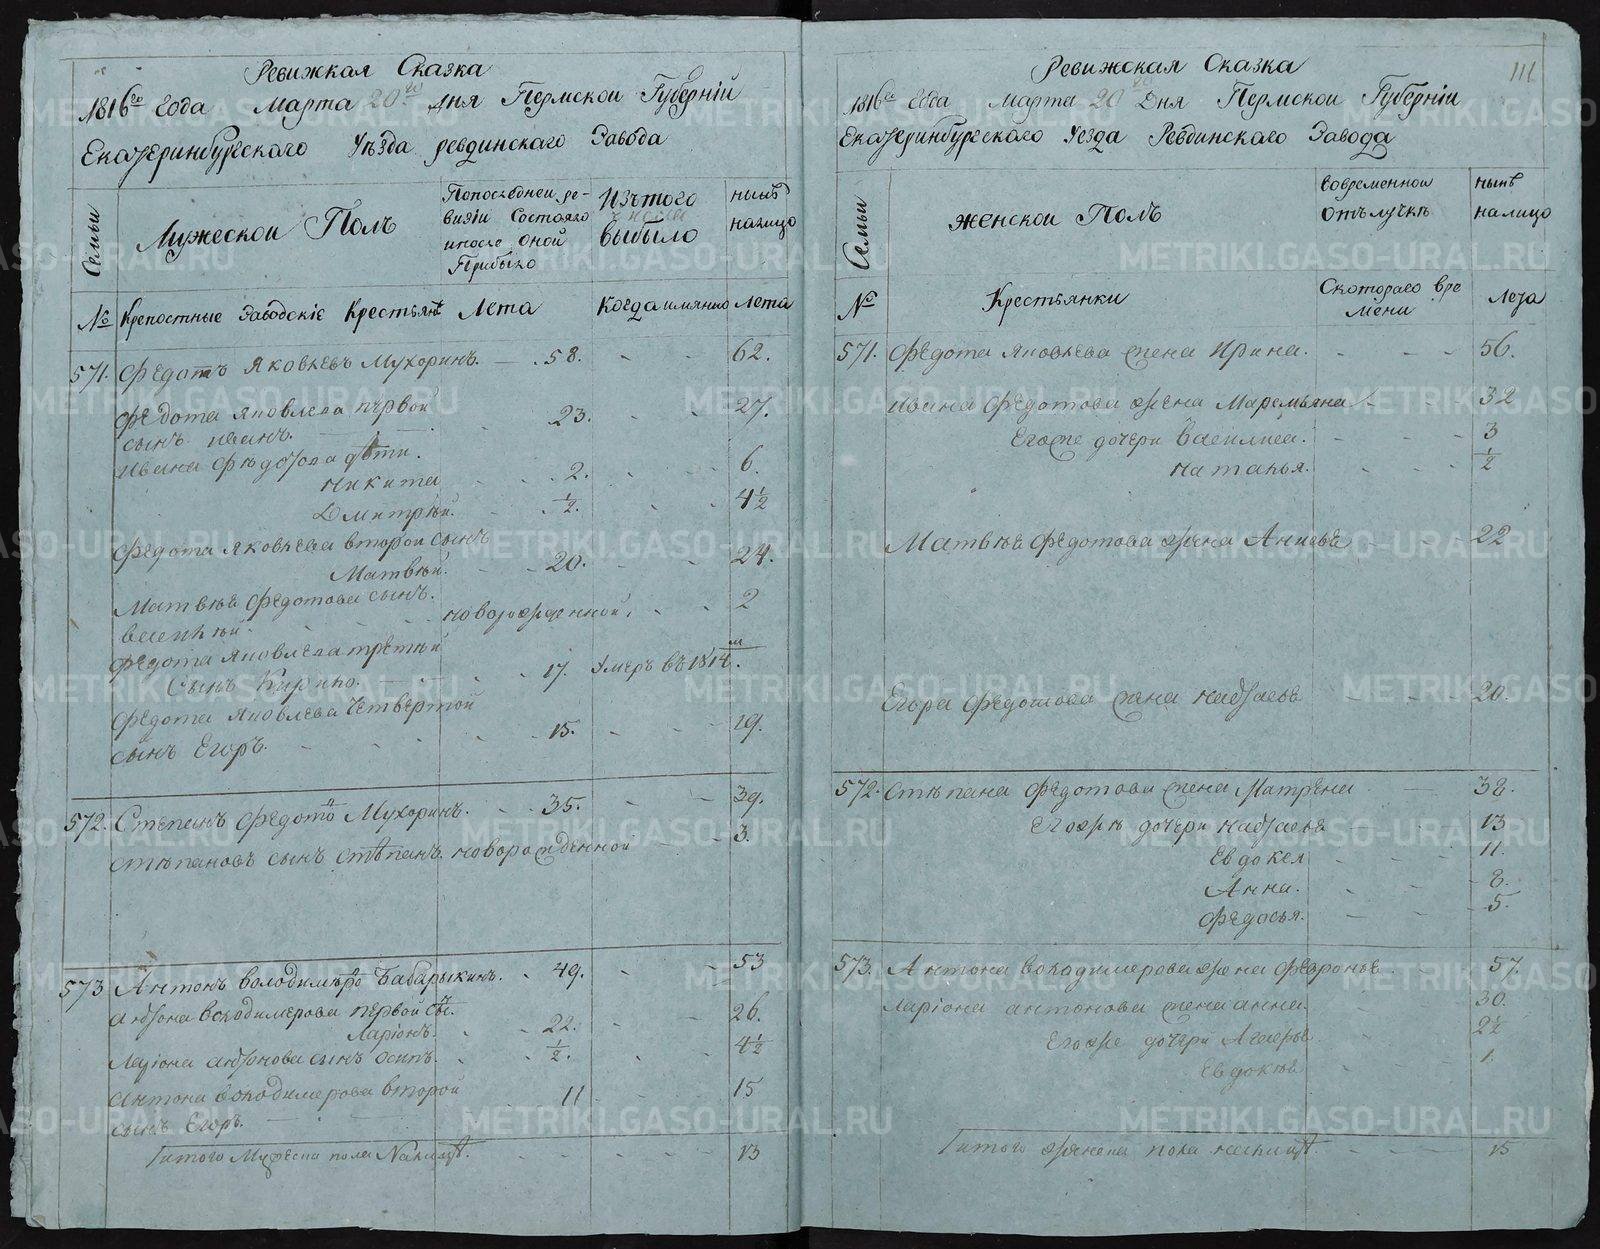 Ревижская Сказка
1816го года марта 20го дня Пермской Губернiи
Екатеринбургского Уѣзда ревдинскаго Завода
Семьи
Мужескои Полъ
Попоследнеи ре-
визiи Состояло
ипосле оной
Прибыло
Изътого
числа
выбыло
нынѣ
налицо
№
Крепостные Заводскiе Крестьянѣ
Лета
Когда имянно
лета
571. Федотъ Яковлевъ Мухоринъ. 58. 62.
Федота Яковлева первой
сынъ иванъ. 23. 27.
Ивана Федотова дѣти.
никита 2. 6.
Дмитрѣй. ½. 4½
Федота Яковлева второй сынъ
Матвѣй. 20. 24.
Матвѣя Федотова сынъ.
василѣй. новорожденной. 2
Федота Яковлева третѣй
Сынъ Кирило. 17. Умеръ въ 1814м.
Федота Яковлева четвертой
сынъ Егоръ. 15. 19.
572. Степанъ Федотов Мухоринъ. 35. 39.
степановъ сынъ степанъ. новорожденной 3.
573 Антонъ володимѣров Бабарыкинъ. 49. 53
Антона володимерова первой сынъ
Ларiонъ. 22. 26.
Ларiона антонова сынъ осипъ. ½. 4½
Антона володимерова второй
сынъ Егоръ. 11 15
Итого Мужеска пола Налицо. 13
111
Ревижская Сказка
1816го года марта 20го дня Пермской Губернiи
Екатеринбургского Уезда Ревдинскаго Завода
Семьи
женской Полъ
вовременной
отълучкѣ
нынѣ
налицо
№
Крестьянки
Скотораго вре
мени
Лета
571. Федота Яковлева жена Ирина. 56.
Ивана Федотова жена Маремьяна 32
Егоже дочери Василиса. 3
наталья. ½
Матвѣя Федотова жена Анисья 22
Егора Федотова жена настасья 20.
572. степана Федотова жена Матрена 38.
Егожъ дочери настасья 13
Евдокея 11.
Анна. 8.
Федосья. 5.
573. Антона володимерова жена февронья 57.
Ларiона антонова жена анна. 30.
Егоже дочери 2½
Евдокѣя 1.
Итого женска пола налицо. 15
METRIKI.GASO-URAL.RU